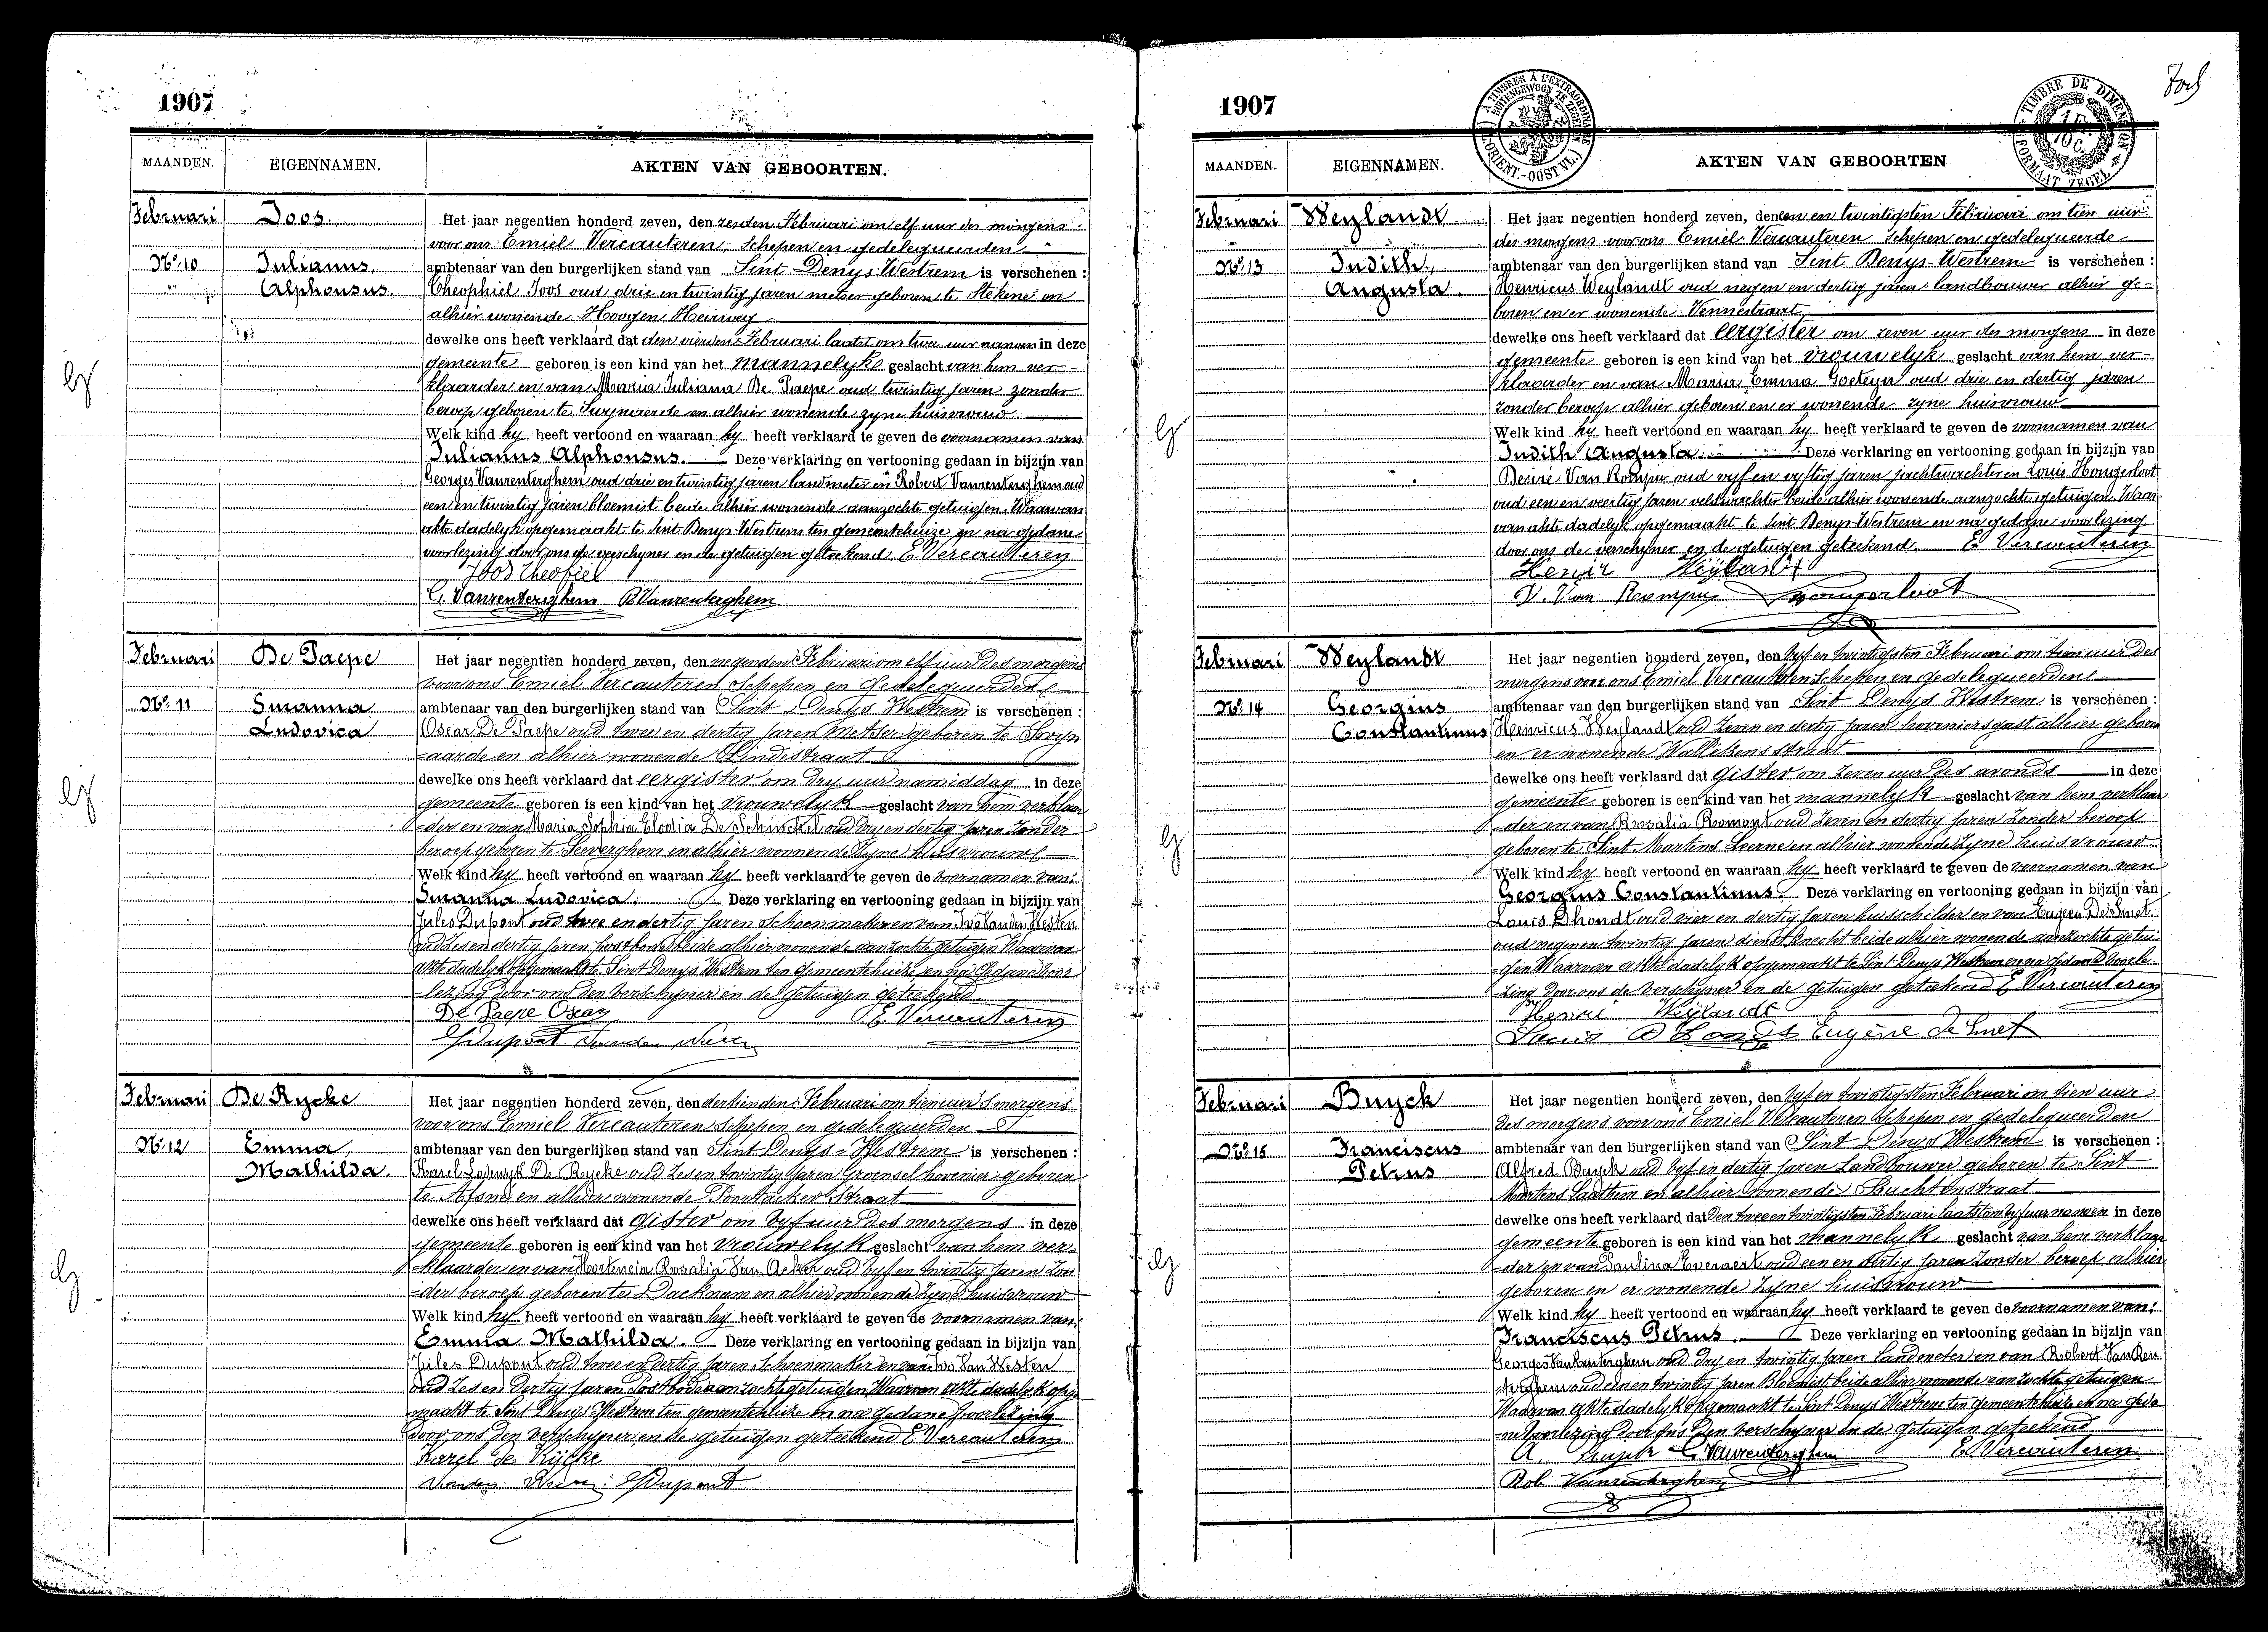 1907
MAANDEN. EIGENNAMEN. AKTEN VAN GEBOORTEN.
Februari Joos. Het jaar negentien honderd zeven, den zesden Februari om elf uur des morgens
voor ons Emiel Vercauteren, Schepen en gedelegueerden
No. 10 Julianus, ambtenaar van den burgerlijken stand van Sint Denys Westrem is verschenen :
Alphonsus. Theophiel Joos oud drie en twintig jaren metser geboren te Stekene en
alhier wonende Hoogen Heirweg
dewelke ons heeft verklaard dat den vierden Februari laatst om twee uur namen in deze
gemeente geboren is een kind van het mannelyke geslacht van hem ver-
klaarder en van Maria Juliana De Paepe oud twintig jaren zonder
beroep geboren te Swynaerde en alhier wonende zyne huisvrouw
Welk kind hy heeft vertoond en waaraan hy heeft verklaard te geven de voornamen van
Julianus Alphonsus. Deze verklaring en vertooning gedaan in bijzijn van
Georges Vanrenterghem oud drie en twintig jaren landmeter en Robert Vanrenterghem oud
een en twintig jaren bloemist beide alhier wonende aanzochte getuigen. Waarvan
akte dadelyk opgemaakt te Sint Denys Westrem ten gemeentehuize en na gedane
voorlezing door ons de verschyner en de getuigen geteekend. E. Vercauteren
Joos Theofiel
G. Vanrenterghem R. Vanrenterghem
Februari De Paepe Het jaar negentien honderd zeven, den negenden Februari om elf uur des morgens
voor ons Emiel Vercauteren Schepen en Gedelegueerden
No. 11 Suzanna ambtenaar van den burgerlijken stand van Sint Denys Westrem is verschenen :
Ludovica Oscar De Paepe oud twee en dertig jaren metser geboren te Swyn
aarde en alhier wonende Lindestraat
dewelke ons heeft verklaard dat eergister om dry uur namiddag in deze
gemeente geboren is een kind van het vrouwelyk geslacht van hem verklaar
der en van Maria Sophia Elodia De Schinckel oud dry en dertig jaren zonder
beroep geboren te Seeverghem en alhier wonende zyne huisvrouw
Welk kind hy heeft vertoond en waaraan hy heeft verklaard te geven de voornamen van:
Suzanna Ludovica. Deze verklaring en vertooning gedaan in bijzijn van
Jules Dupont oud twee en dertig jaren Schoenmaker en van Ivo Vanden Westen
oud zes en dertig jaren postbode beide alhier wonende aanzochte getuigen Waarvan
akte dadelyk opgemaakt te Sint Denys Westrem ten gemeentehuize en na gedane voor
lezing door ons den verschyner en de getuigen geteekend.
De Paepe Oscar E. Vercauteren
J Dupont
Februari De Rycke Het jaar negentien honderd zeven, den dertienden Februari om tien uur 's morgens
voor ons Emiel Vercauteren Schepen en gedelegueerden
No. 12 Emma, ambtenaar van den burgerlijken stand van Sint Denys-Westrem is verschenen :
Mathilda. Karel Lodewyk De Rycke oud zes en twintig jaren Groensel hovenier geboren
te Afsné en alhier wonende Poortackerstraat
dewelke ons heeft verklaard dat gister om vyf uur des morgens in deze
gemeente geboren is een kind van het vrouwelyk geslacht van hem ver-
klaarder en van Hortencia Rosalia Van Acker oud vyf en twintig jaren zon
der beroep geboren te Dacknam en alhier wonende zyne huisvrouw
Welk kind hy heeft vertoond en waaraan hy heeft verklaard te geven de voornamen van:
Emma Mathilda. Deze verklaring en vertooning gedaan in bijzijn van
Jules Dupont oud twee en dertig jaren Schoenmaker en van Ivo Van Westen
oud zes en dertig jaren Postbode aanzochte getuigen Waarvan akte dadelyk opge
maakt te Sint Denys Westrem ten gemeentehuize en na gedane voorlezing
door ons den verschyner en de getuigen geteekend E. Vercauteren
Karel de Rijcke
J Dupont
1907
A TIMBRER A L'EXTRAORDINAIRE
BUITENGEWOON TE ZEGELEN
(FL. ORIENT.-OOST VL.)
TIMBRE DE DIMENSION
FORMAAT ZEGEL
MAANDEN. EIGENNAMEN. AKTEN VAN GEBOORTEN
Februari Weylandt Het jaar negentien honderd zeven, den een en twintigsten Februari om tien uur
des morgens voor ons Emiel Vercauteren Schepen en gedelegueerde
No. 13 Judith, ambtenaar van den burgerlijken stand van Sint Denys-Westrem is verschenen :
Augusta. Henricus Weylandt oud negen en dertig jaren landbouwer alhier ge-
boren en er wonende Vennestraat
dewelke ons heeft verklaard dat eergister om zeven uur des morgens in deze
gemeente geboren is een kind van het vrouwelyk geslacht van hem ver-
klaarder en van Maria Emma Goeteyn oud drie en dertig jaren
zonder beroep alhier geboren en er wonende zyne huisvrouw
Welk kind hy heeft vertoond en waaraan hy heeft verklaard te geven de voornamen van
Judith Augusta. Deze verklaring en vertooning gedaan in bijzijn van
Desiré Van Rompu oud vyf en vyftig jaren jachtwachter en Louis Hongerloot
oud een en veertig jaren veldwachter beide alhier wonende aanzochte getuigen. Waar
van akte dadelyk opgemaakt te Sint Denys Westrem en na gedane voorlezing
door ons de verschyner en de getuigen geteekend. E. Vercauteren
Henri Weylandt
D. Van Rompu Hongerloot
Februari Weylandt Het jaar negentien honderd zeven, den vyf en twintigsten Februari om tien uur des
morgens voor ons Emiel Vercauteren Schepen en gedelegueerden
No. 14 Georgius ambtenaar van den burgerlijken stand van Sint Denys Westrem is verschenen :
Constantinus Henricus Weylandt oud zeven en dertig jaren hoveniersgast alhier geboren
en er wonende Wallekensstraat
dewelke ons heeft verklaard dat gister om zeven uur des avonds in deze
gemeente geboren is een kind van het mannelyk geslacht van hem verklaar
der en van Rosalia Roemont oud zeven en dertig jaren zonder beroep
geboren te Sint Martens Leerne en alhier wonende zyne huisvrouw
Welk kind hy heeft vertoond en waaraan hy heeft verklaard te geven de voornamen van
Georgius Constantinus. Deze verklaring en vertooning gedaan in bijzijn van
Louis Dhondt oud vier en dertig jaren huisschilder en van Eugeen De Smet
oud negen en twintig jaren dienstknecht beide alhier wonende aanzochte getui-
gen Waarvan akte dadelyk opgemaakt te Sint Denys Westrem en na gedane voorle-
zing door ons de verschyner en de getuigen geteekend E. Vercauteren
Henri Weijlandt
Louis D'hondt Eugène de Smet
Februari Buyck Het jaar negentien honderd zeven, den vyf en twintigsten Februari om tien uur
des morgens voor ons Emiel Vercauteren Schepen en gedelegueerden
No. 15 Franciscus ambtenaar van den burgerlijken stand van Sint Denys Westrem is verschenen :
Petrus Alfred Buyck oud vyf en dertig jaren Landbouwer geboren te Sint
Martens Laathem en alhier wonende Buchtenstraat
dewelke ons heeft verklaard dat den twee en twintigsten Februari laatst om vyf uur namen in deze
gemeente geboren is een kind van het mannelyk geslacht van hem verklaar
der en van Paulina Everaert oud een en dertig jaren zonder beroep alhier
geboren en er wonende zyne huisvrouw
Welk kind hy heeft vertoond en waaraan hy heeft verklaard te geven de voornamen van:
Franciscus Petrus. Deze verklaring en vertooning gedaan in bijzijn van
Georges Vanrenterghem oud dry en twintig jaren Landmeter en van Robert Van Ren
terghem oud een en twintig jaren Bloemist beide alhier wonende aanzochte getuigen
Waarvan akte dadelyk opgemaakt te Sint Denys Westrem ten gemeentehuize en na geda
ne voorlezing door ons den verschyner en de getuigen geteekend
A. Buyck G. Vanrenterghem E. Vercauteren
Rob. Vanrenterghem